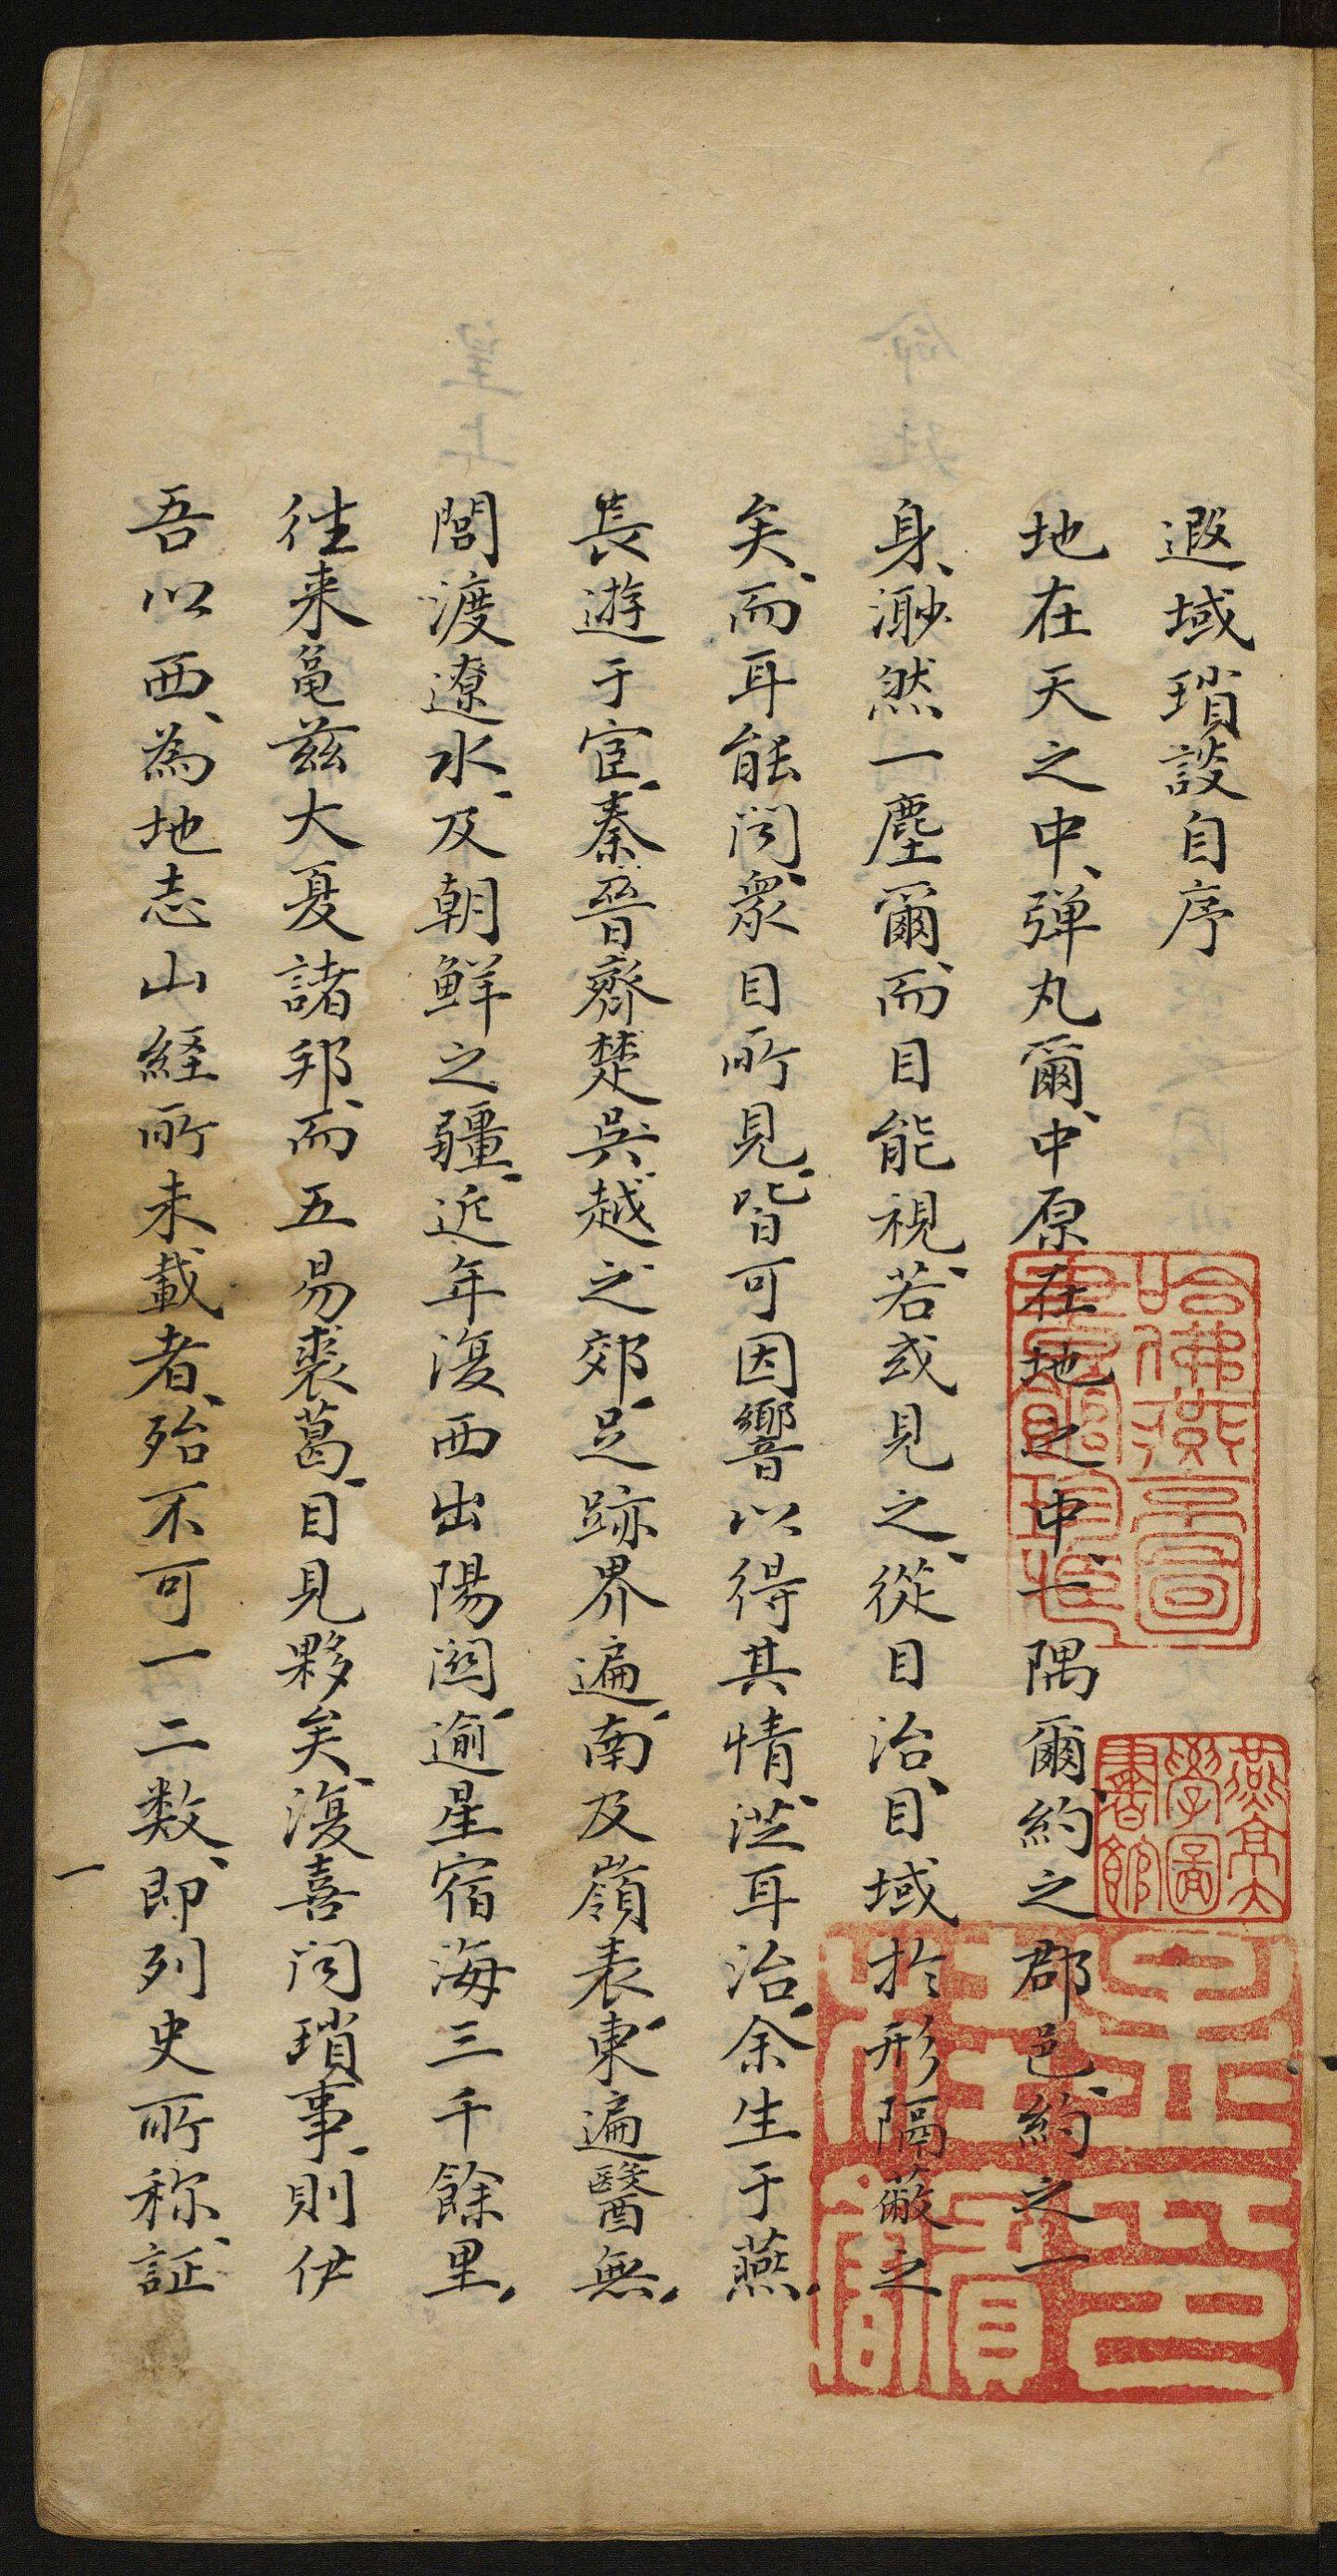 遐域瑣談自序
地在天之中、弹丸爾、中原在地之中、一隅爾、約之郡邑、約之一
身、渺然一塵爾、而目能視、若或見之、從目治、目域於形隔蔽之
矣、而耳能闻、衆目所見、皆可因響以得其情、從耳治、余生于燕、
長遊于宦、秦晉齊楚吳越之郊、足跡畧遍、南及嶺表、東遍醫無、
閭渡遼水、及朝鮮之疆、近年復西出陽関、逾星宿海三千餘里、
往来龟兹大夏諸邦、而五易裘葛、目見夥矣、復喜问瑣事、則伊
吾以西、為地志山経所未載者、殆不可一二数、即列史所称、証
一
哈佛燕京圖書館珍藏
燕京大學圖書館